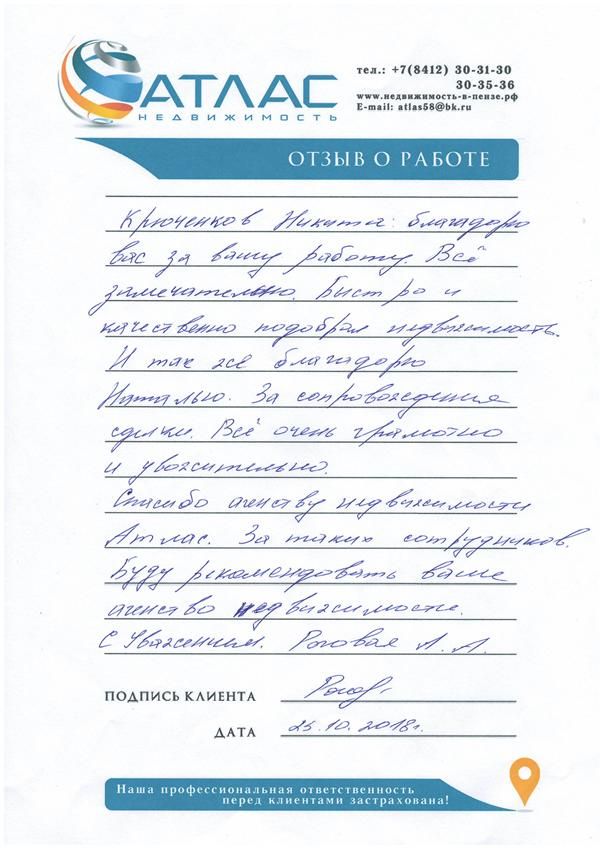 АТЛАС
НЕДВИЖИМОСТЬ
тел.: +7(8412) 30-31-30
30-35-36
www.недвижимость-в-пензе.рф
E-mail: atlas58@bk.ru
ОТЗЫВ О РАБОТЕ
Крюченков Никита: благадорю
вас за вашу работу. Всё
замечательно. Быстро и
качественно подобрал недвижимость.
И так же благадорю
Наталью. За сопровождения
сделки. Всё очень грамотно
и уважительно.
Спасибо агенству недвижимости
Атлас. За таких сотрудников.
Буду рекомендовать ваше
агенство недвижимости.
С Уважением. Роговая Л. А.
ПОДПИСЬ КЛИЕНТА
ДАТА 25.10.2018г.
Наша профессиональная ответственность
перед клиентами застрахована!